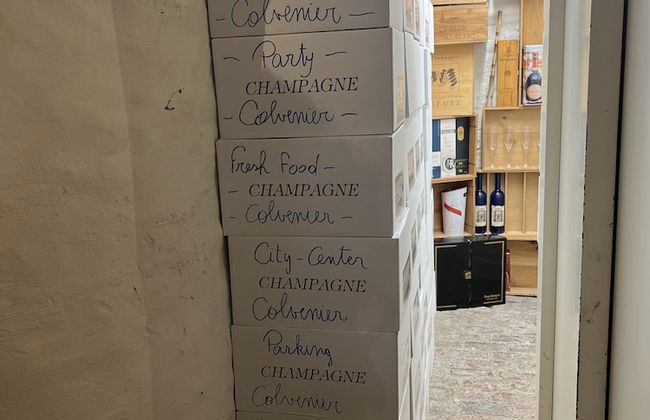 - Colvenier -
- Party -
CHAMPAGNE
- Colvenier -
Fresh Food -
- CHAMPAGNE
- Colvenier -
City-Center
CHAMPAGNE
Colvenier
Parking
CHAMPAGNE
Colvenier
DEUTZ